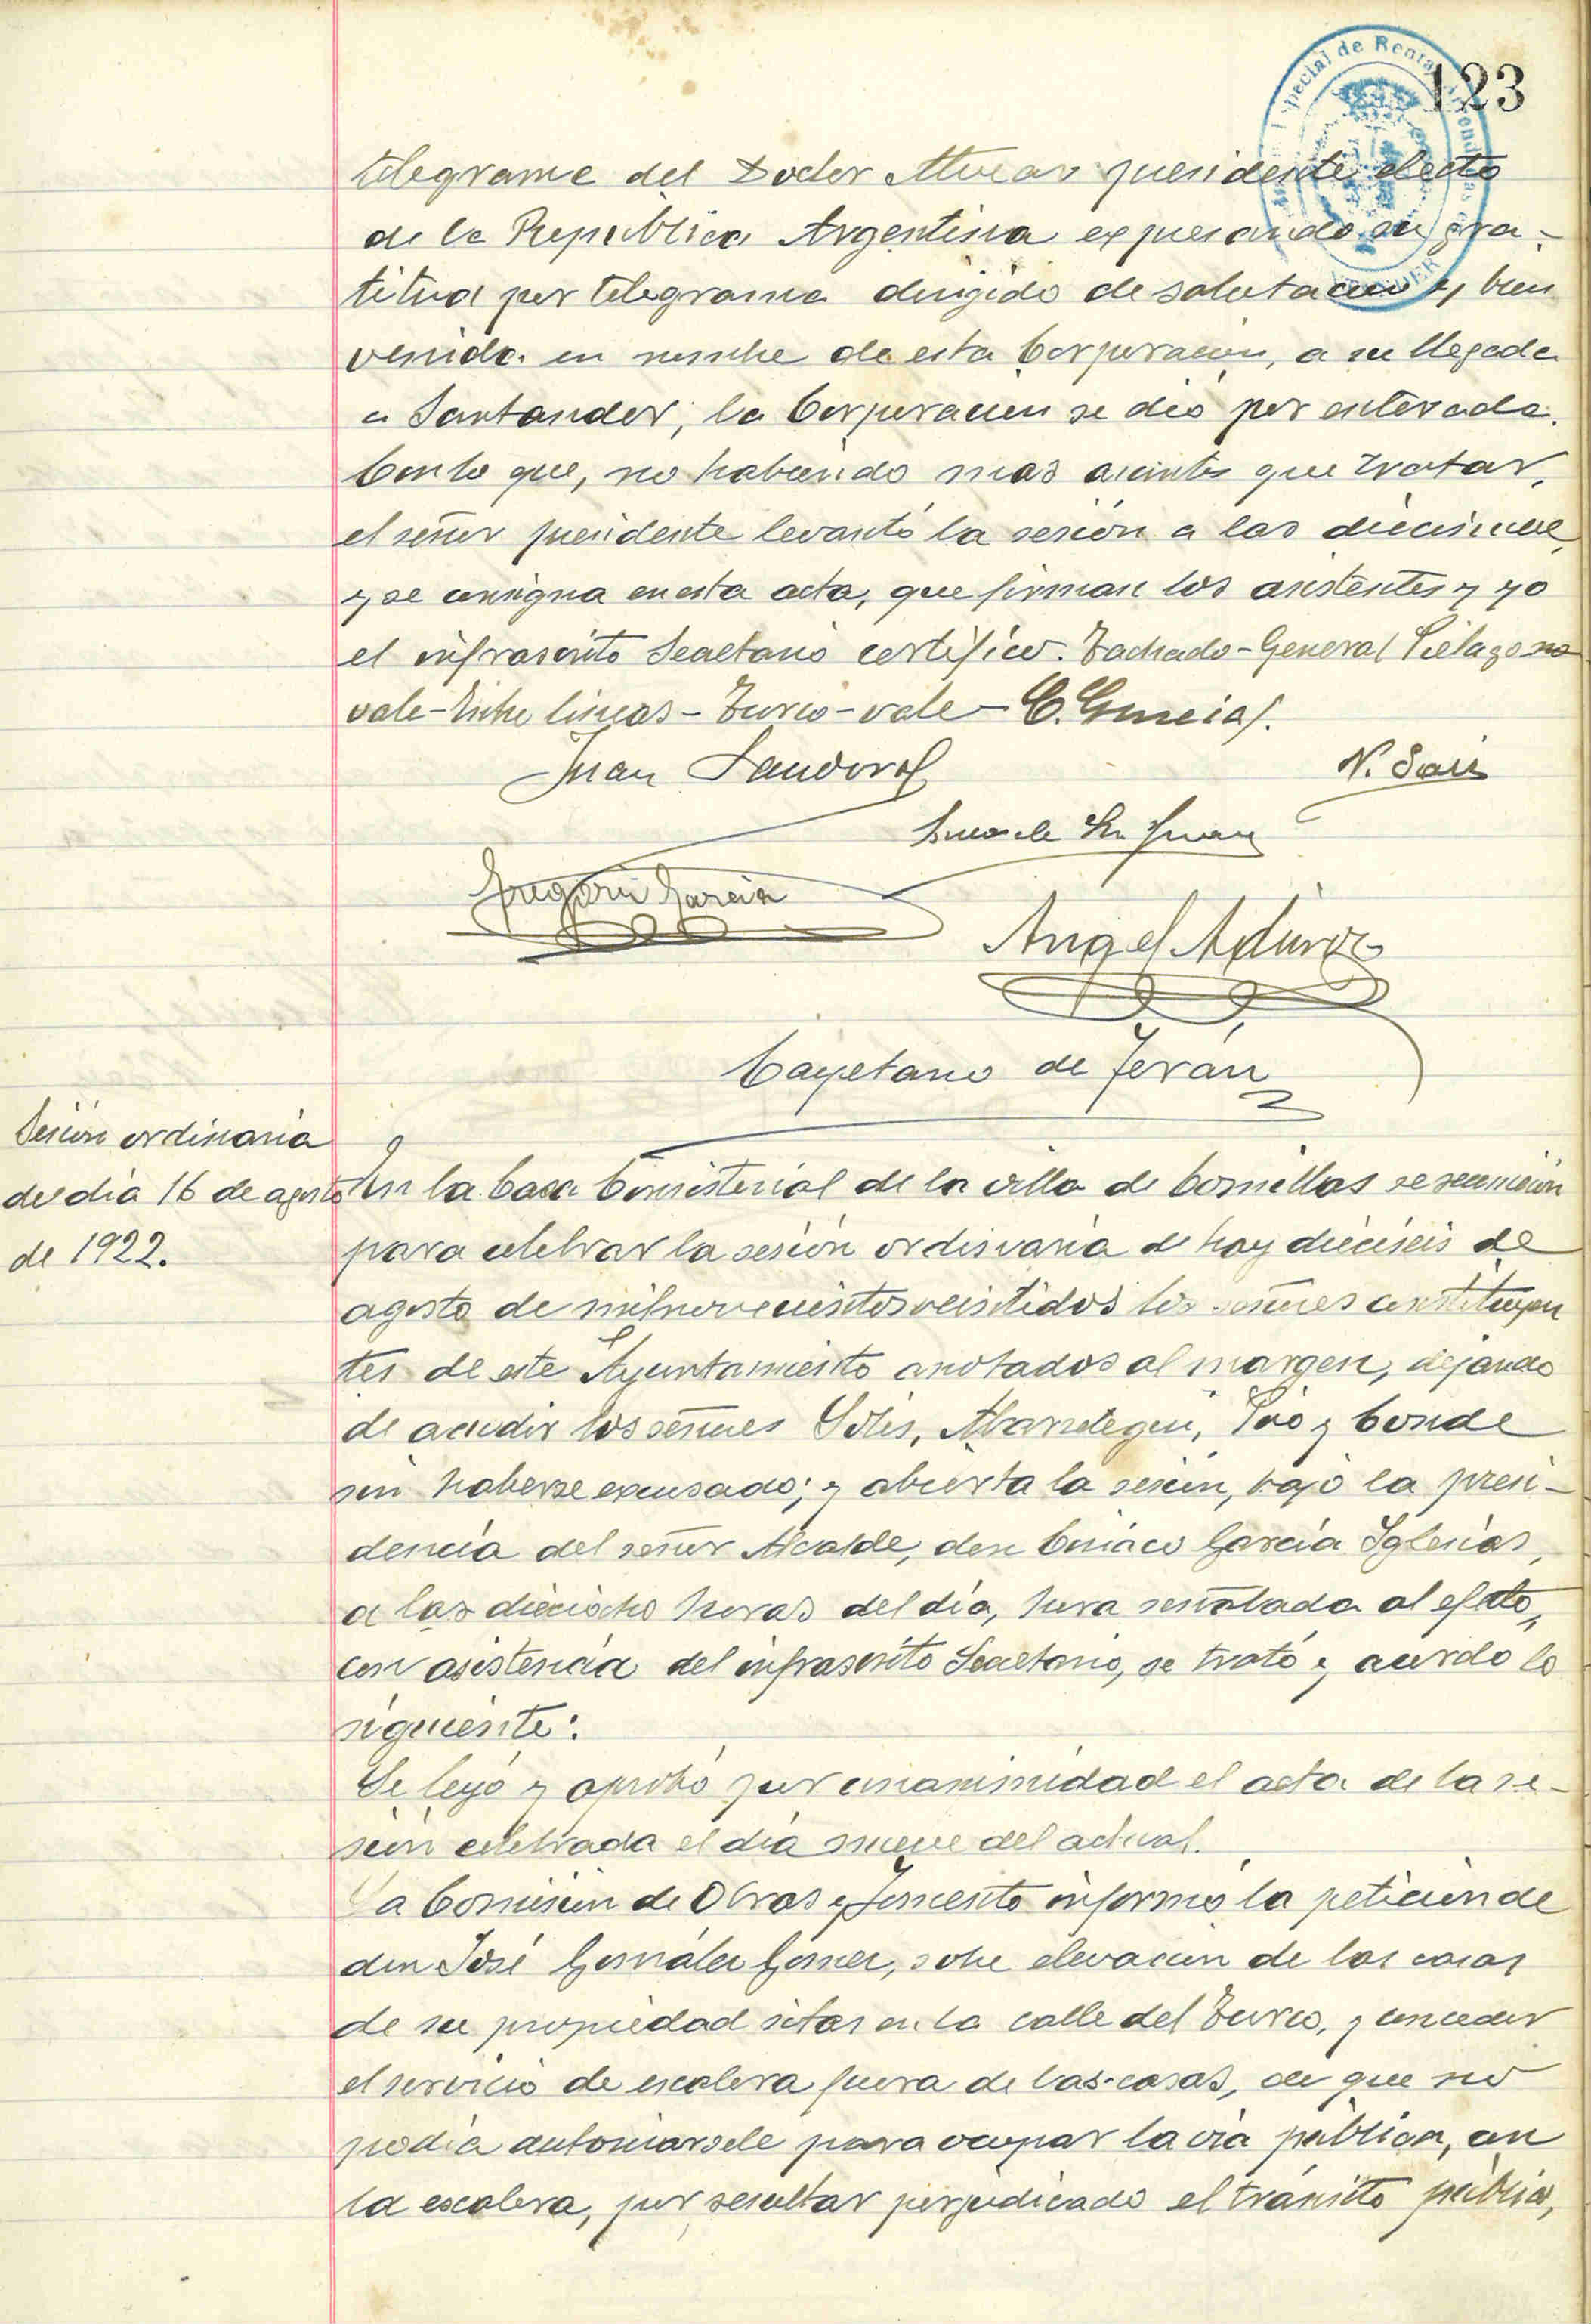 123
telegrama del Doctor Alvear presidente electo
de la Republica Argentina expresando su gra-
titud por telegrama dirigido de salutacion y bien
venida en nombre de esta Corporacion, a su llegada
a Santander; la Corporacion se dió por enterada.
Con lo que, no habiendo mas asuntos que tratar,
el señor presidente levantó la sesión a las diecinueve,
y se consigna en esta acta, que firman los asistentes y yo
el infrascrito Secretario certifico. Tachado - General Piélago no
vale - Entre lineas - Turco - vale - C. García I.
Juan Sandoval
N. Saiz
Lucas de San Juan
Gregorio Garcia
Angel
Cayetano de Terán
Sesión ordinaria
del dia 16 de agosto
de 1922.
En la Casa Consistorial de la villa de Comillas se reunieron
para celebrar la sesión ordinaria de hoy dieciseis de
agosto de mil novecientos veintidos los señores constituyen
tes de este Ayuntamiento anotados al margen, dejando
de acudir los señores Solis, Mararetegui, Pío y Conde
sin haberse excusado; y abierta la sesion, bajo la presi-
dencia del señor Alcalde, don Ciriaco García Iglesias,
a las dieciocho horas del día, hora señalada al efecto,
con asistencia del infrascrito Secretario, se trató y acordó lo
siguiente:
Se leyó y aprobó por unanimidad el acta de la se-
sion celebrada el día nueve del actual.
La Comision de Obras y Fomento informó la peticion de
don José González Gómez, sobre elevacion de las casas
de su propiedad sitas en la calle del Turco, y conceder
el servicio de escalera fuera de las casas, de que no
podía autorizarsele para ocupar la via pública, con
la escalera, por resultar perjudicado el tránsito público,